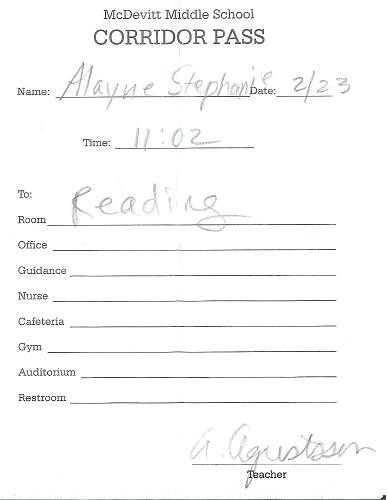 McDevitt Middle School
CORRIDOR PASS
Name: Alayne Stephanie Date: 2/23
Time: 11:02
To: Reading
Room
Office
Guidance
Nurse
Cafeteria
Gym
Auditorium
Restroom
A. Agustsson
Teacher